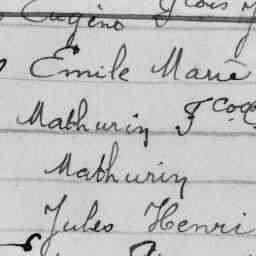 Eugène
Emile Marie
Mathurin Fcois
Mathurin
Jules Henri